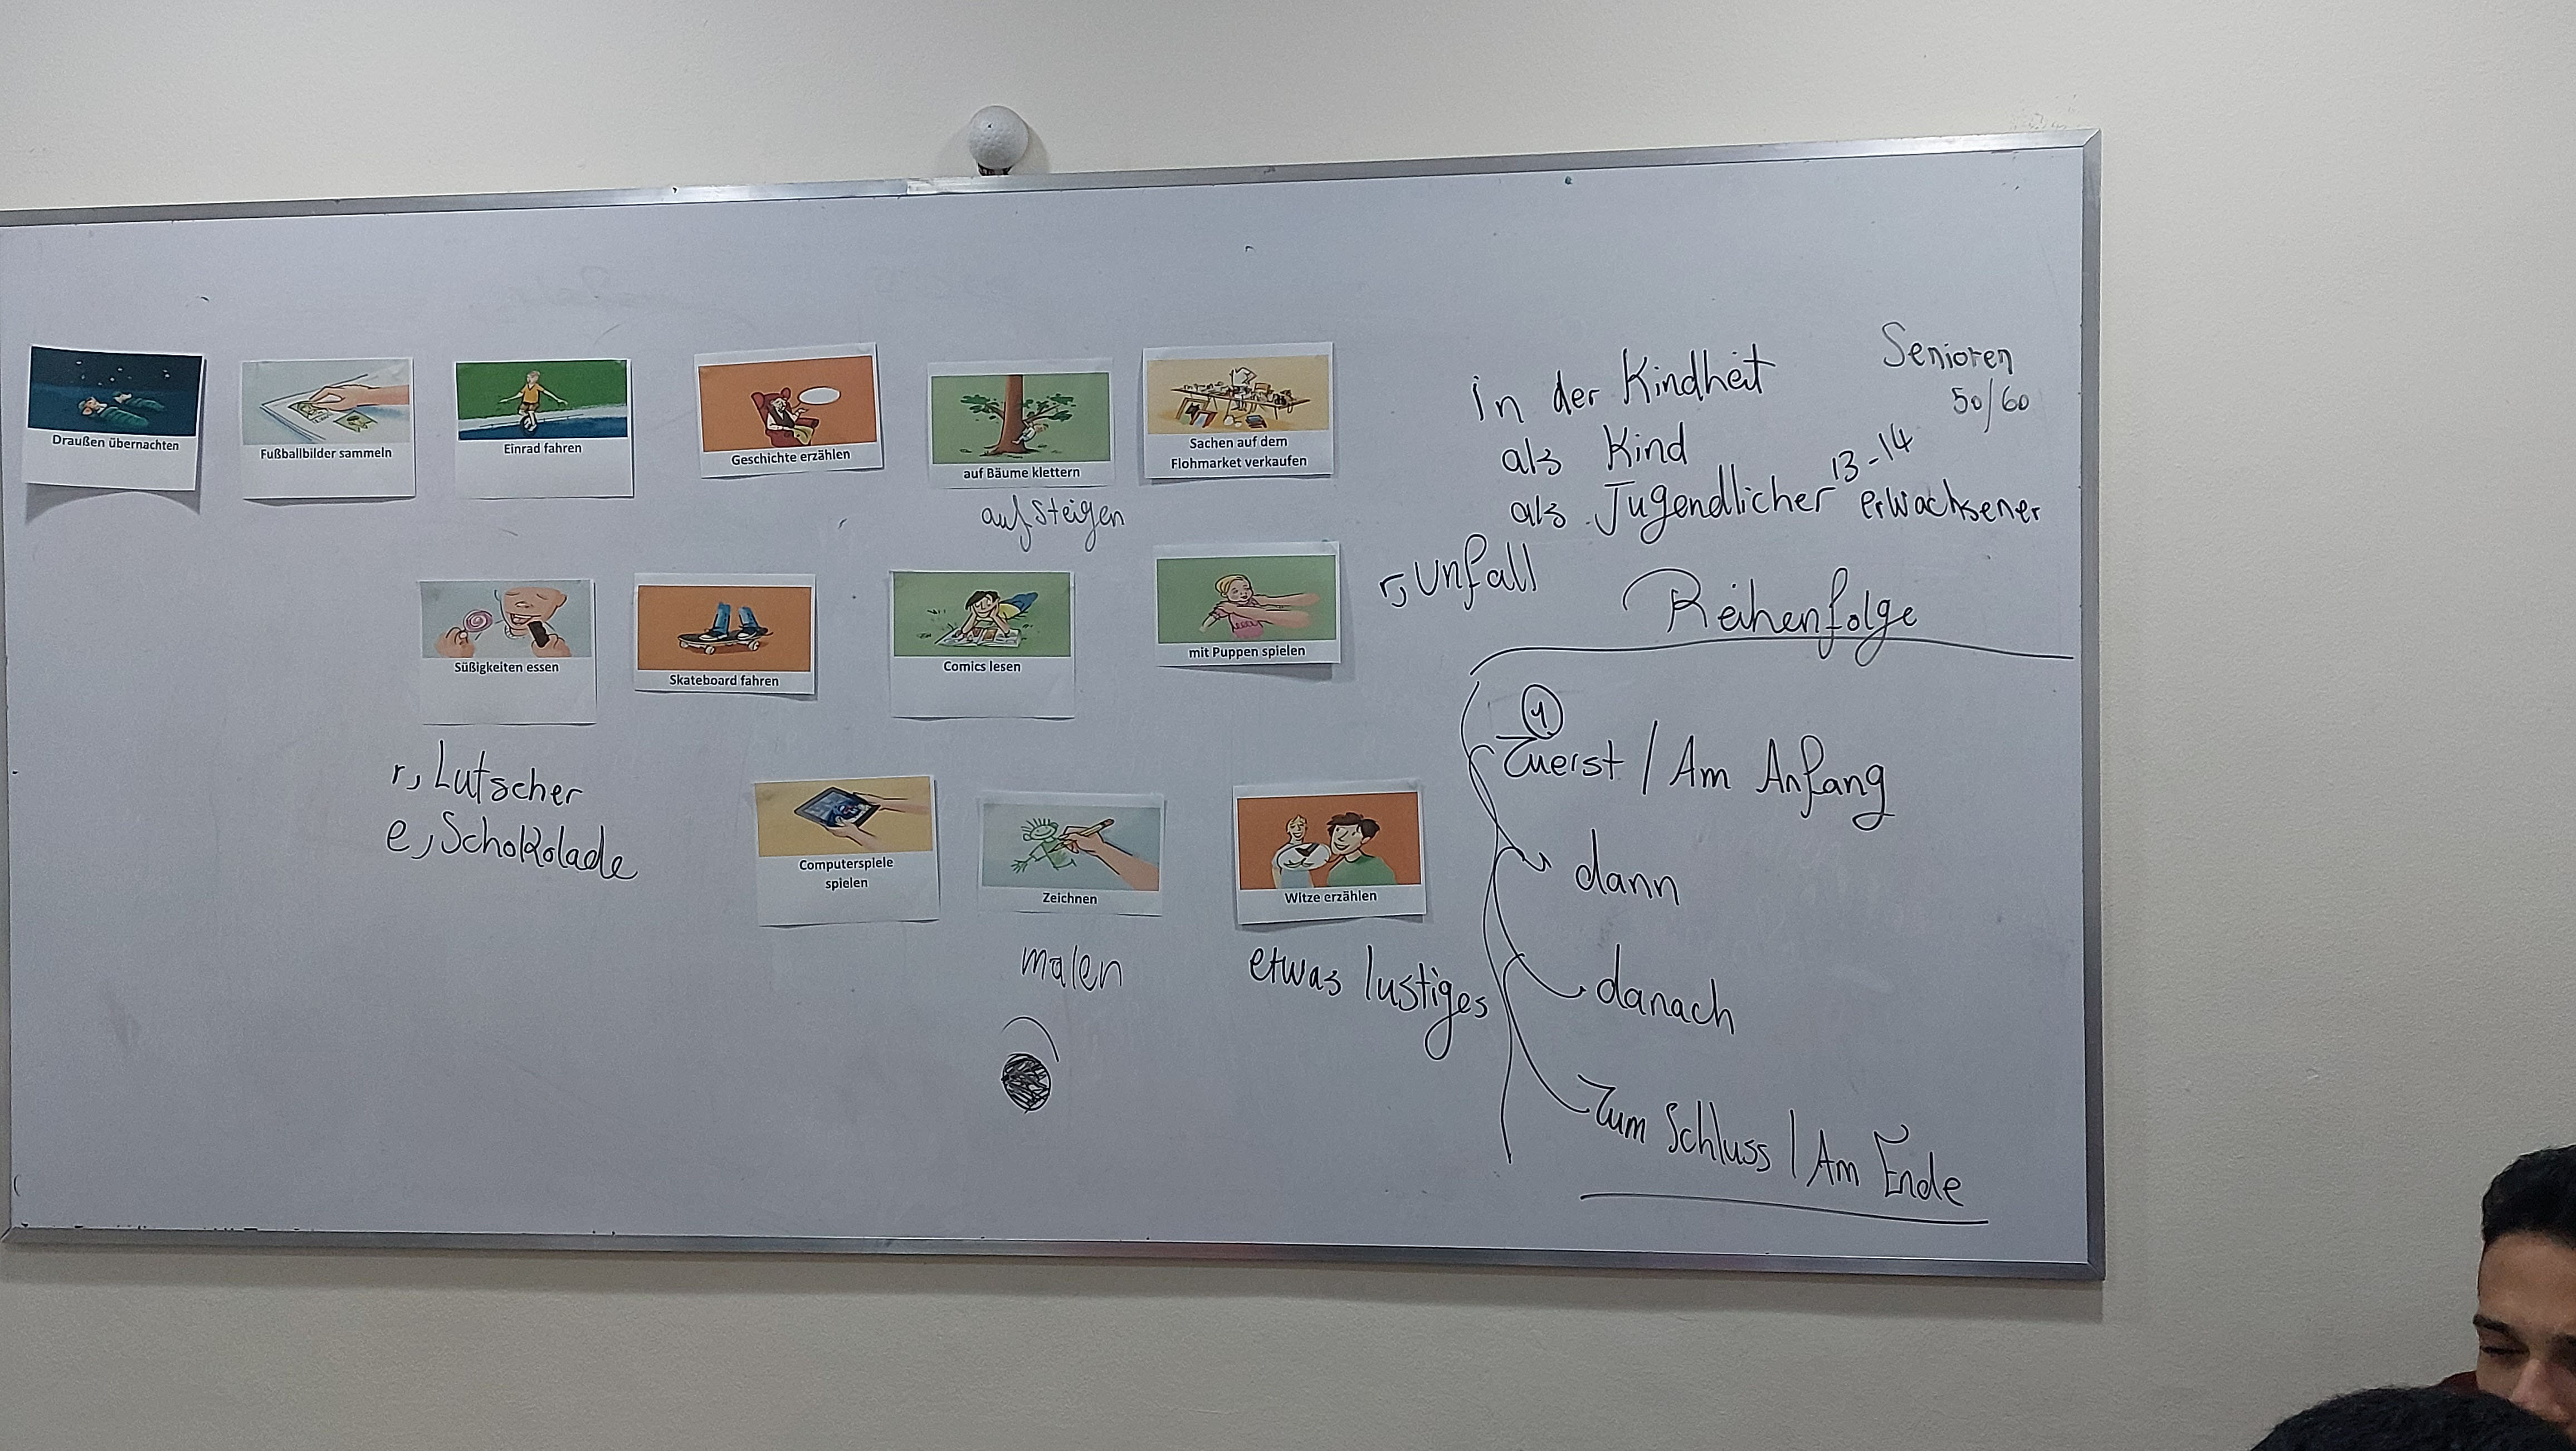 Draußen übernachten
Fußballbilder sammeln
Einrad fahren
Geschichte erzählen
auf Bäume klettern
aufsteigen
Sachen auf dem
Flohmarket verkaufen
Süßigkeiten essen
r, Lutscher
e, Schokolade
Skateboard fahren
Comics lesen
mit Puppen spielen
Computerspiele
spielen
Zeichnen
malen
Witze erzählen
etwas lustiges
in der Kindheit
als Kind
als Jugendlicher 13-14 erwachsener
Senioren
50/60
r, Unfall
Reihenfolge
1
Zuerst / Am Anfang
dann
danach
Zum Schluss / Am Ende